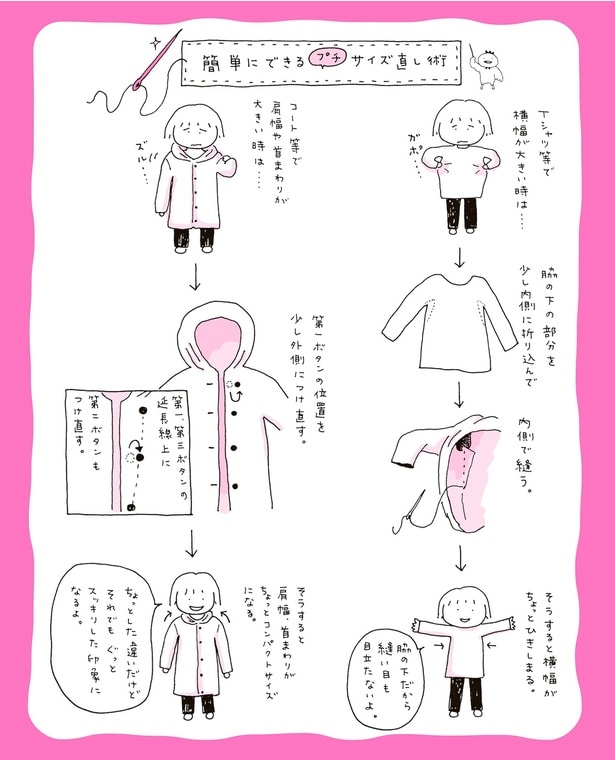 簡単にできるプチサイズ直し術
Tシャツ等で
横幅が大きい時は‥‥
ガボ‥‥
脇の下の部分を
少し内側に折り込んで
内側で縫う。
そうすると横幅が
ちょっとひきしまる。
脇の下だから
縫い目も
目立たないよ。
コート等で
肩幅や首まわりが
大きい時は‥‥
ズルッ‥‥
第一ボタンの位置を
少し外側につけ直す。
第一、第三ボタンの
延長線上に
第二ボタンも
つけ直す。
そうすると
肩幅、首まわりが
ちょっとコンパクトサイズ
になる。
ちょっとした違いだけど
それでもぐっと
スッキリした印象に
なるよ。